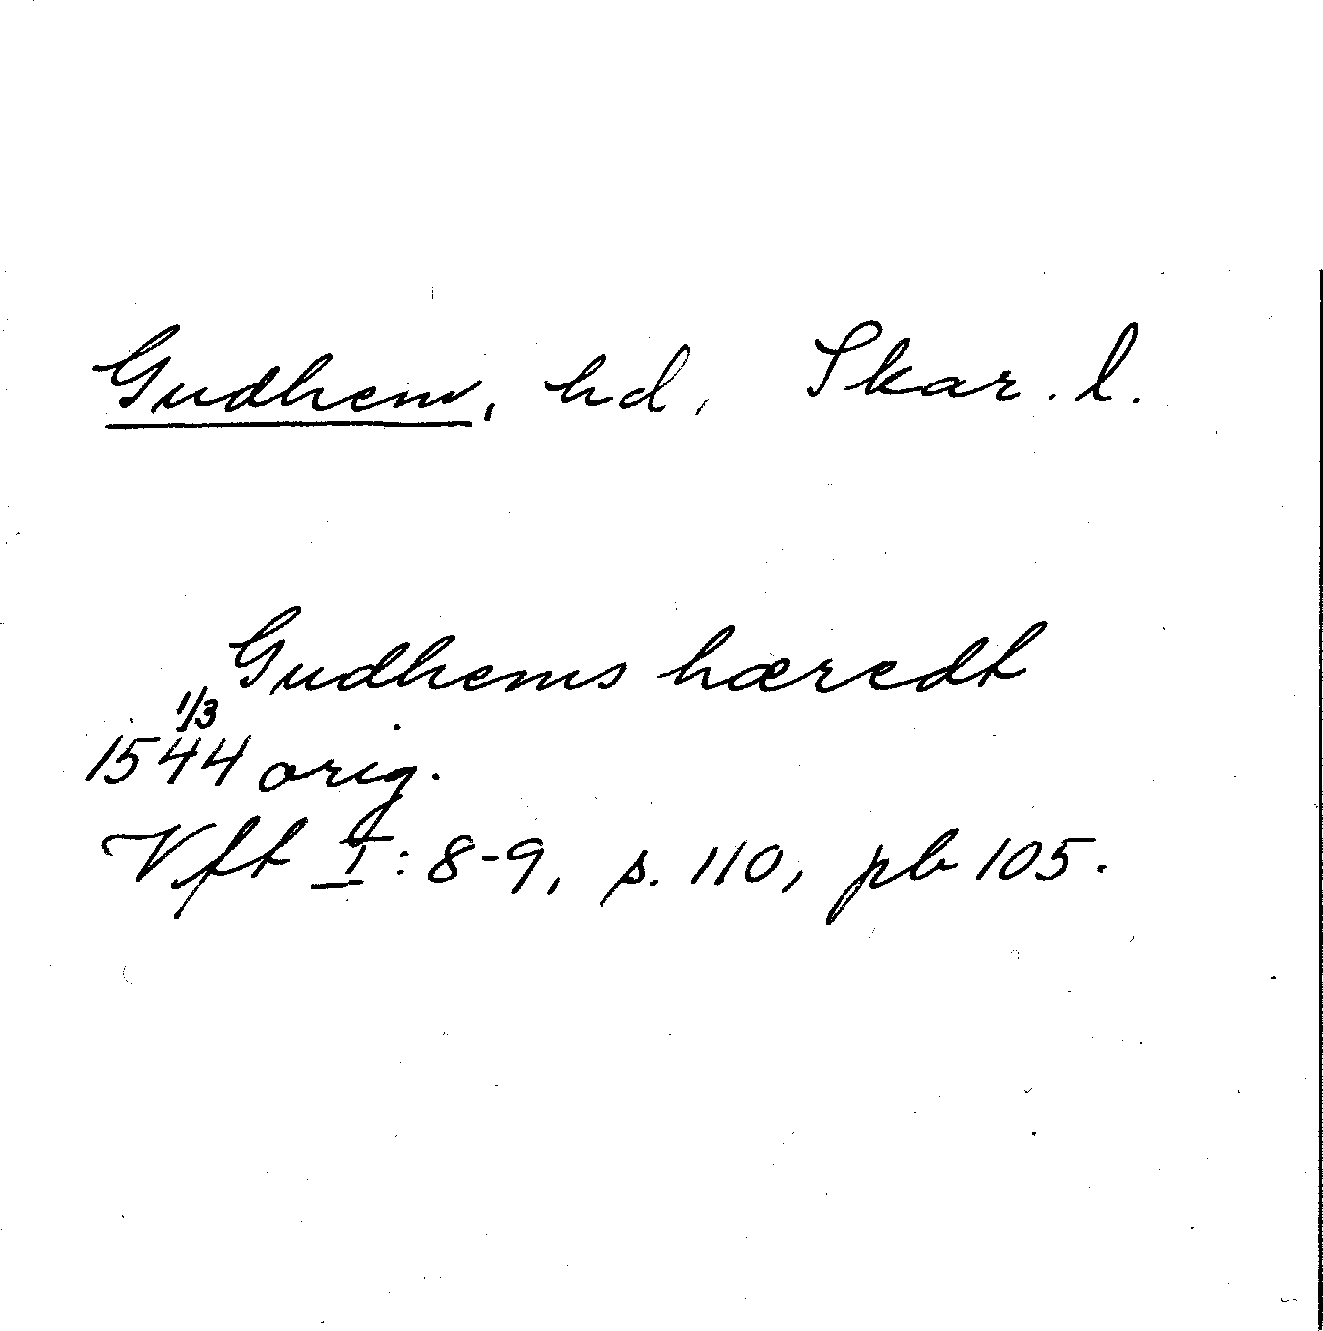 Gudhem, hd, Skar. l.
Gudhems hæredt
1/3
1544 orig.
Vft I: 8-9, s. 110, pb 105.